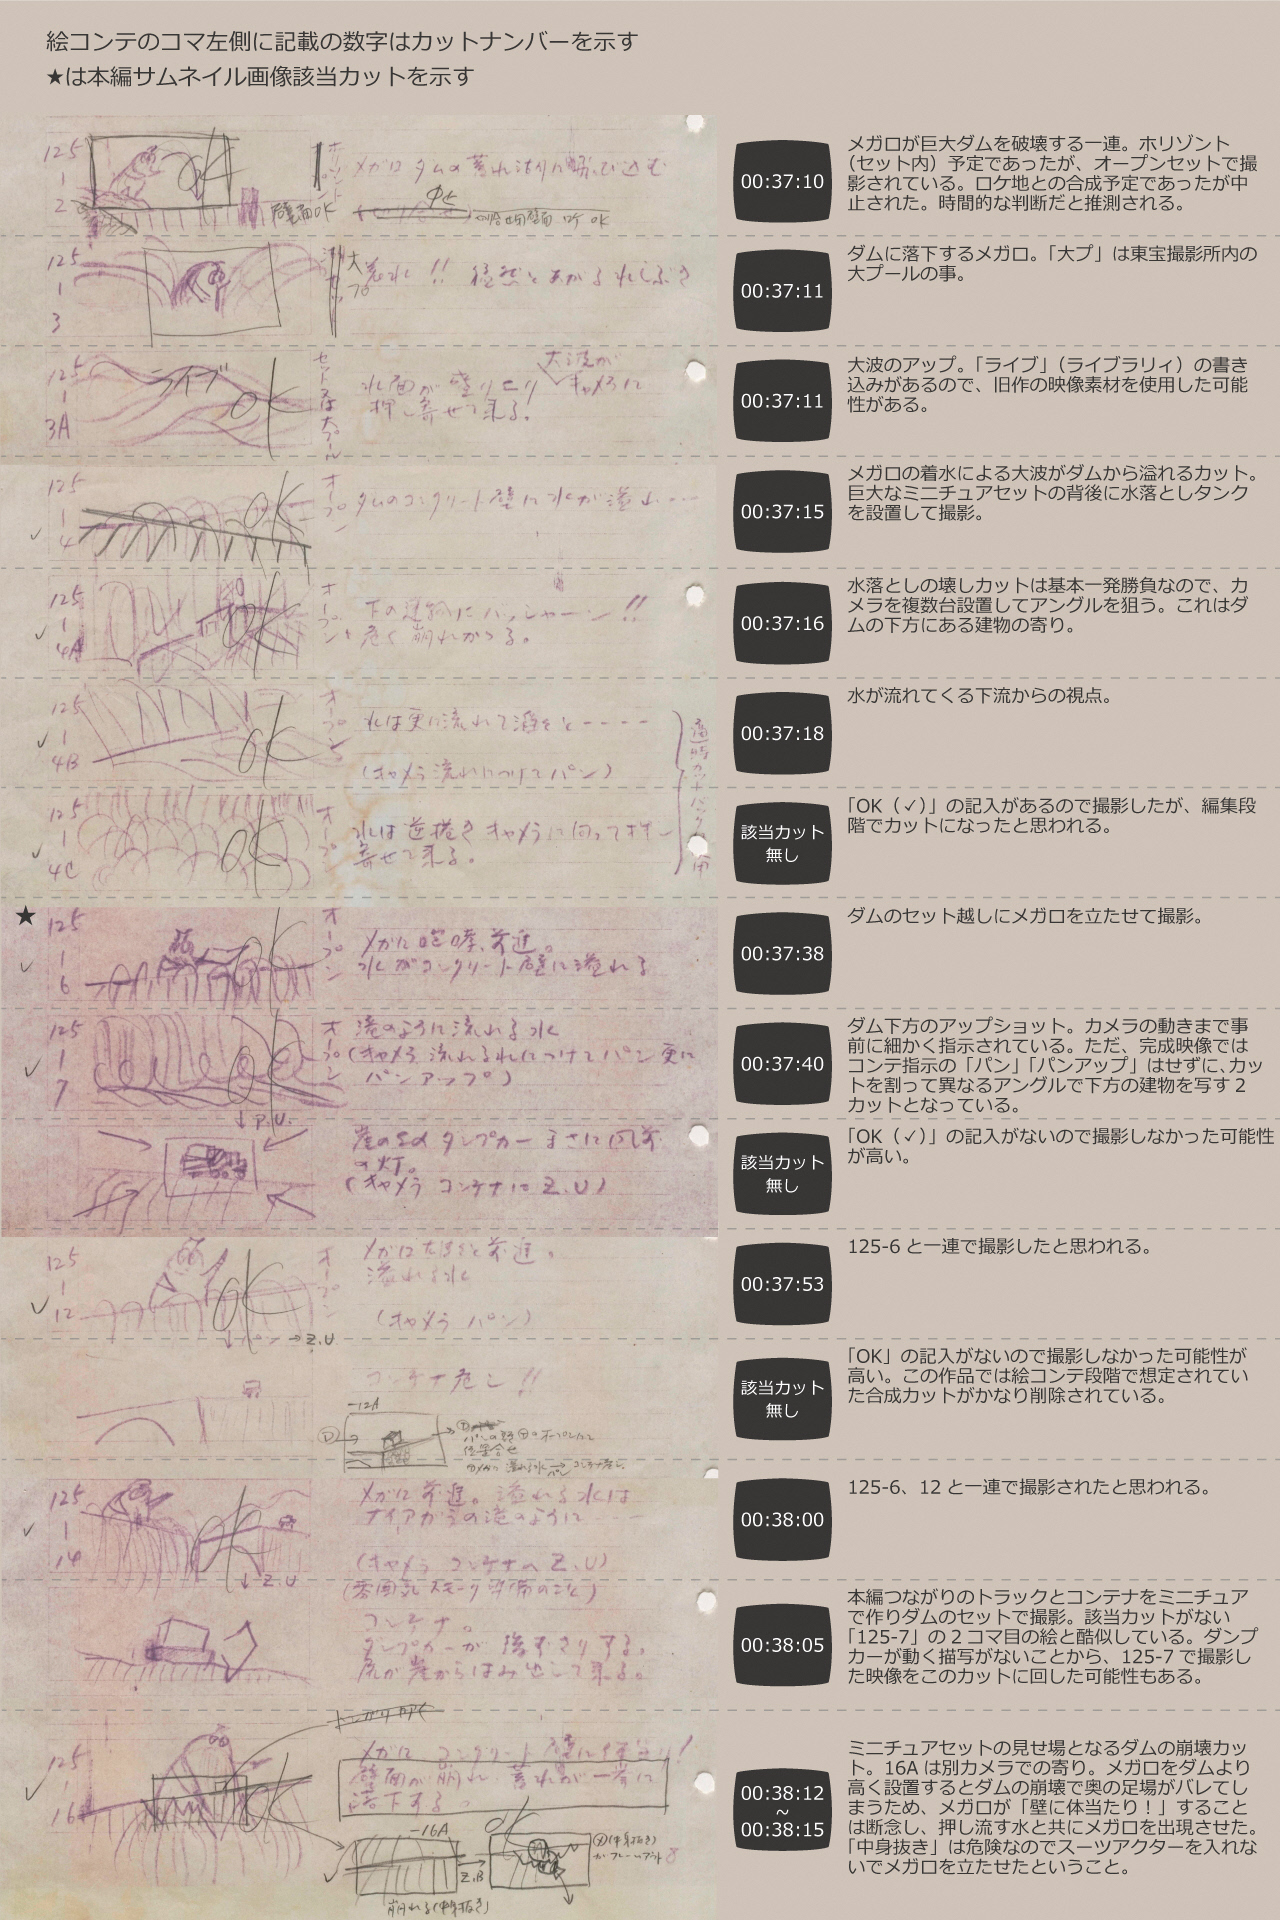 絵コンテのコマ左側に記載の数字はカットナンバーを示す
★は本編サムネイル画像該当カットを示す
125
1
2
OK
壁面OK
メガロ ダムの蓄れ
00:37:10
メガロが巨大ダムを破壊する一連。ホリゾント
(セット内)予定であったが、オープンセットで撮
影されている。ロケ地との合成予定であったが中
止された。時間的な判断だと推測される。
125
1
3
大プロ
!!
00:37:11
ダムに落下するメガロ。「大プ」は東宝撮影所内の
大プールの事。
125
1
3A
ライブ
OK
セット又は大プール
大波が
水面が盛り上り キャメラに
押し寄せて来る。
00:37:11
大波のアップ。「ライブ」(ライブラリィ)の書き
込みがあるので、旧作の映像素材を使用した可能
性がある。
125
1
4
OK
オープン
ダムのコンクリート壁に水が溢れ‥‥
00:37:15
メガロの着水による大波がダムから溢れるカット。
巨大なミニチュアセットの背後に水落としタンク
を設置して撮影。
125
1
4A
OK
オープン
下の建物にバッシャーン!!
危く崩れかゝる。
00:37:16
水落としの壊しカットは基本一発勝負なので、カ
メラを複数台設置してアングルを狙う。これはダ
ムの下方にある建物の寄り。
125
1
4B
OK
オープン
水は更に流れて
(キャメラ流れにつけてパン)
00:37:18
水が流れてくる下流からの視点。
125
1
4C
OK
オープン
水は逆捲き キャメラに向って押し
寄せて来る。
該当カット
無し
「OK(✓)」の記入があるので撮影したが、編集段
階でカットになったと思われる。
★
125
1
6
OK
オープン
メガロ咆哮、前進。
水がコンクリート壁に溢れる
00:37:38
ダムのセット越しにメガロを立たせて撮影。
125
1
7
オープン
滝のように流れる水
(キャメラ 流れる水につけてパン 更に
パンアップ)
↓P.U.
00:37:40
ダム下方のアップショット。カメラの動きまで事
前に細かく指示されている。ただ、完成映像では
コンテ指示の「パン」「パンアップ」はせずに、カッ
トを割って異なるアングルで下方の建物を写す2
カットとなっている。
(キャメラ コンテナに Z.U)
該当カット
無し
「OK(✓)」の記入がないので撮影しなかった可能性
が高い。
125
1
12
OK
オープン
溢れる水
(キャメラ パン)
↓パン→Z.U.
00:37:53
125-6 と一連で撮影したと思われる。
コンテナ危し!!
-12A
該当カット
無し
「OK」の記入がないので撮影しなかった可能性が
高い。この作品では絵コンテ段階で想定されてい
た合成カットがかなり削除されている。
125
1
14
OK
↓Z.U
メガロ前進。溢れる水は
ナイアガラの滝のように
(キャメラ コンテナへ Z.U)
00:38:00
125-6、12 と一連で撮影されたと思われる。
コンテナ。
ダンプカーが 後ずさりする。
尻が崖からはみ出して来る。
00:38:05
本編つながりのトラックとコンテナをミニチュア
で作りダムのセットで撮影。該当カットがない
「125-7」の2コマ目の絵と酷似している。ダンプ
カーが動く描写がないことから、125-7 で撮影し
た映像をこのカットに回した可能性もある。
125
1
16
OK
メガロ コンクリート壁に体当り!
壁面が崩れ 蓄れが一挙に
落下する。
-16A
Z.B
OK
崩れる(中身抜き)
00:38:12
~
00:38:15
ミニチュアセットの見せ場となるダムの崩壊カッ
ト。16A は別カメラでの寄り。メガロをダムより
高く設置するとダムの崩壊で奥の足場がバレてし
まうため、メガロが「壁に体当たり!」すること
は断念し、押し流す水と共にメガロを出現させた。
「中身抜き」は危険なのでスーツアクターを入れな
いでメガロを立たせたということ。